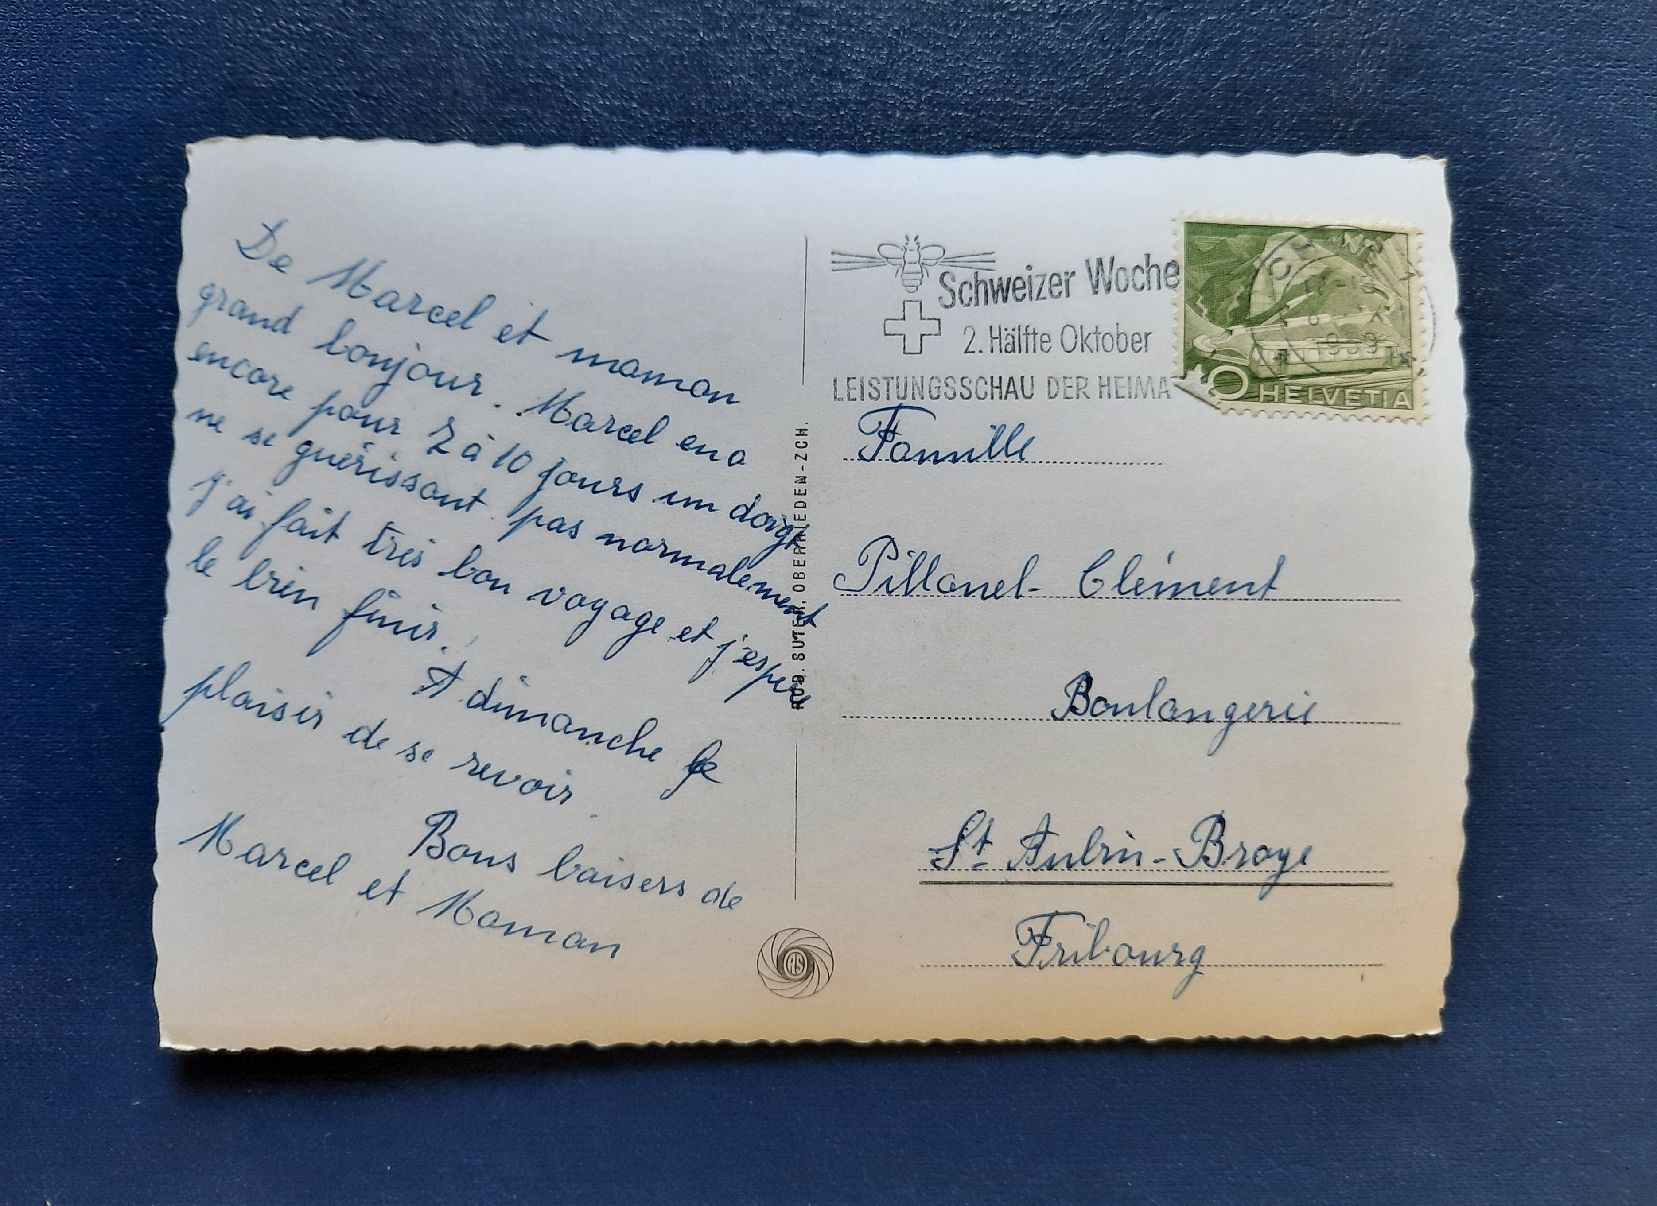 De Marcel et maman
grand bonjour. Marcel en a
encore pour 7 à 10 jours un doigt
ne se guérissant pas normalement
j'ai fait très bon voyage et j'espère
le bien finir.
A dimanche le
plaisir de se revoir
Bons baisers de
Marcel et Maman
Schweizer Woche
2. Hälfte Oktober
LEISTUNGSSCHAU DER HEIMA
HELVETIA
Famille
Pillonel-Clément
Boulangerie
St Aubin-Broye
Fribourg
RUD. SUTER, OBERRIEDEN-ZCH.